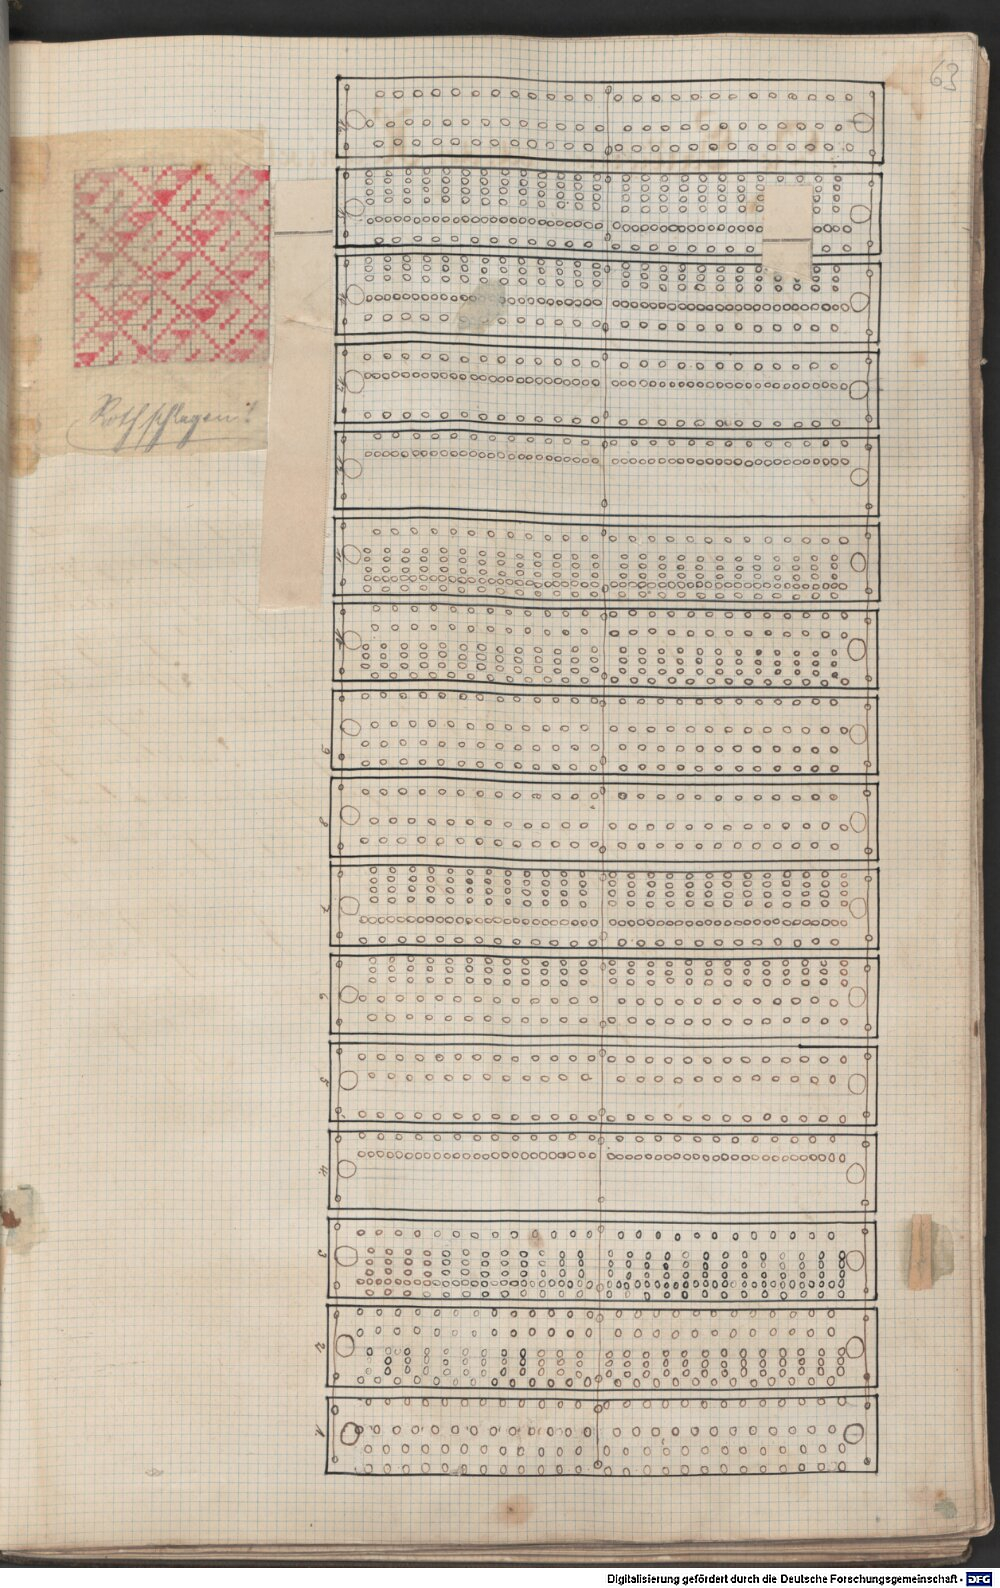 63
16
15
14
13
12
11
10
9
8
7
6
5
4
3
2
1
Roth schlagen!
Digitalisierung gefördert durch die Deutsche Forschungsgemeinschaft - DFG